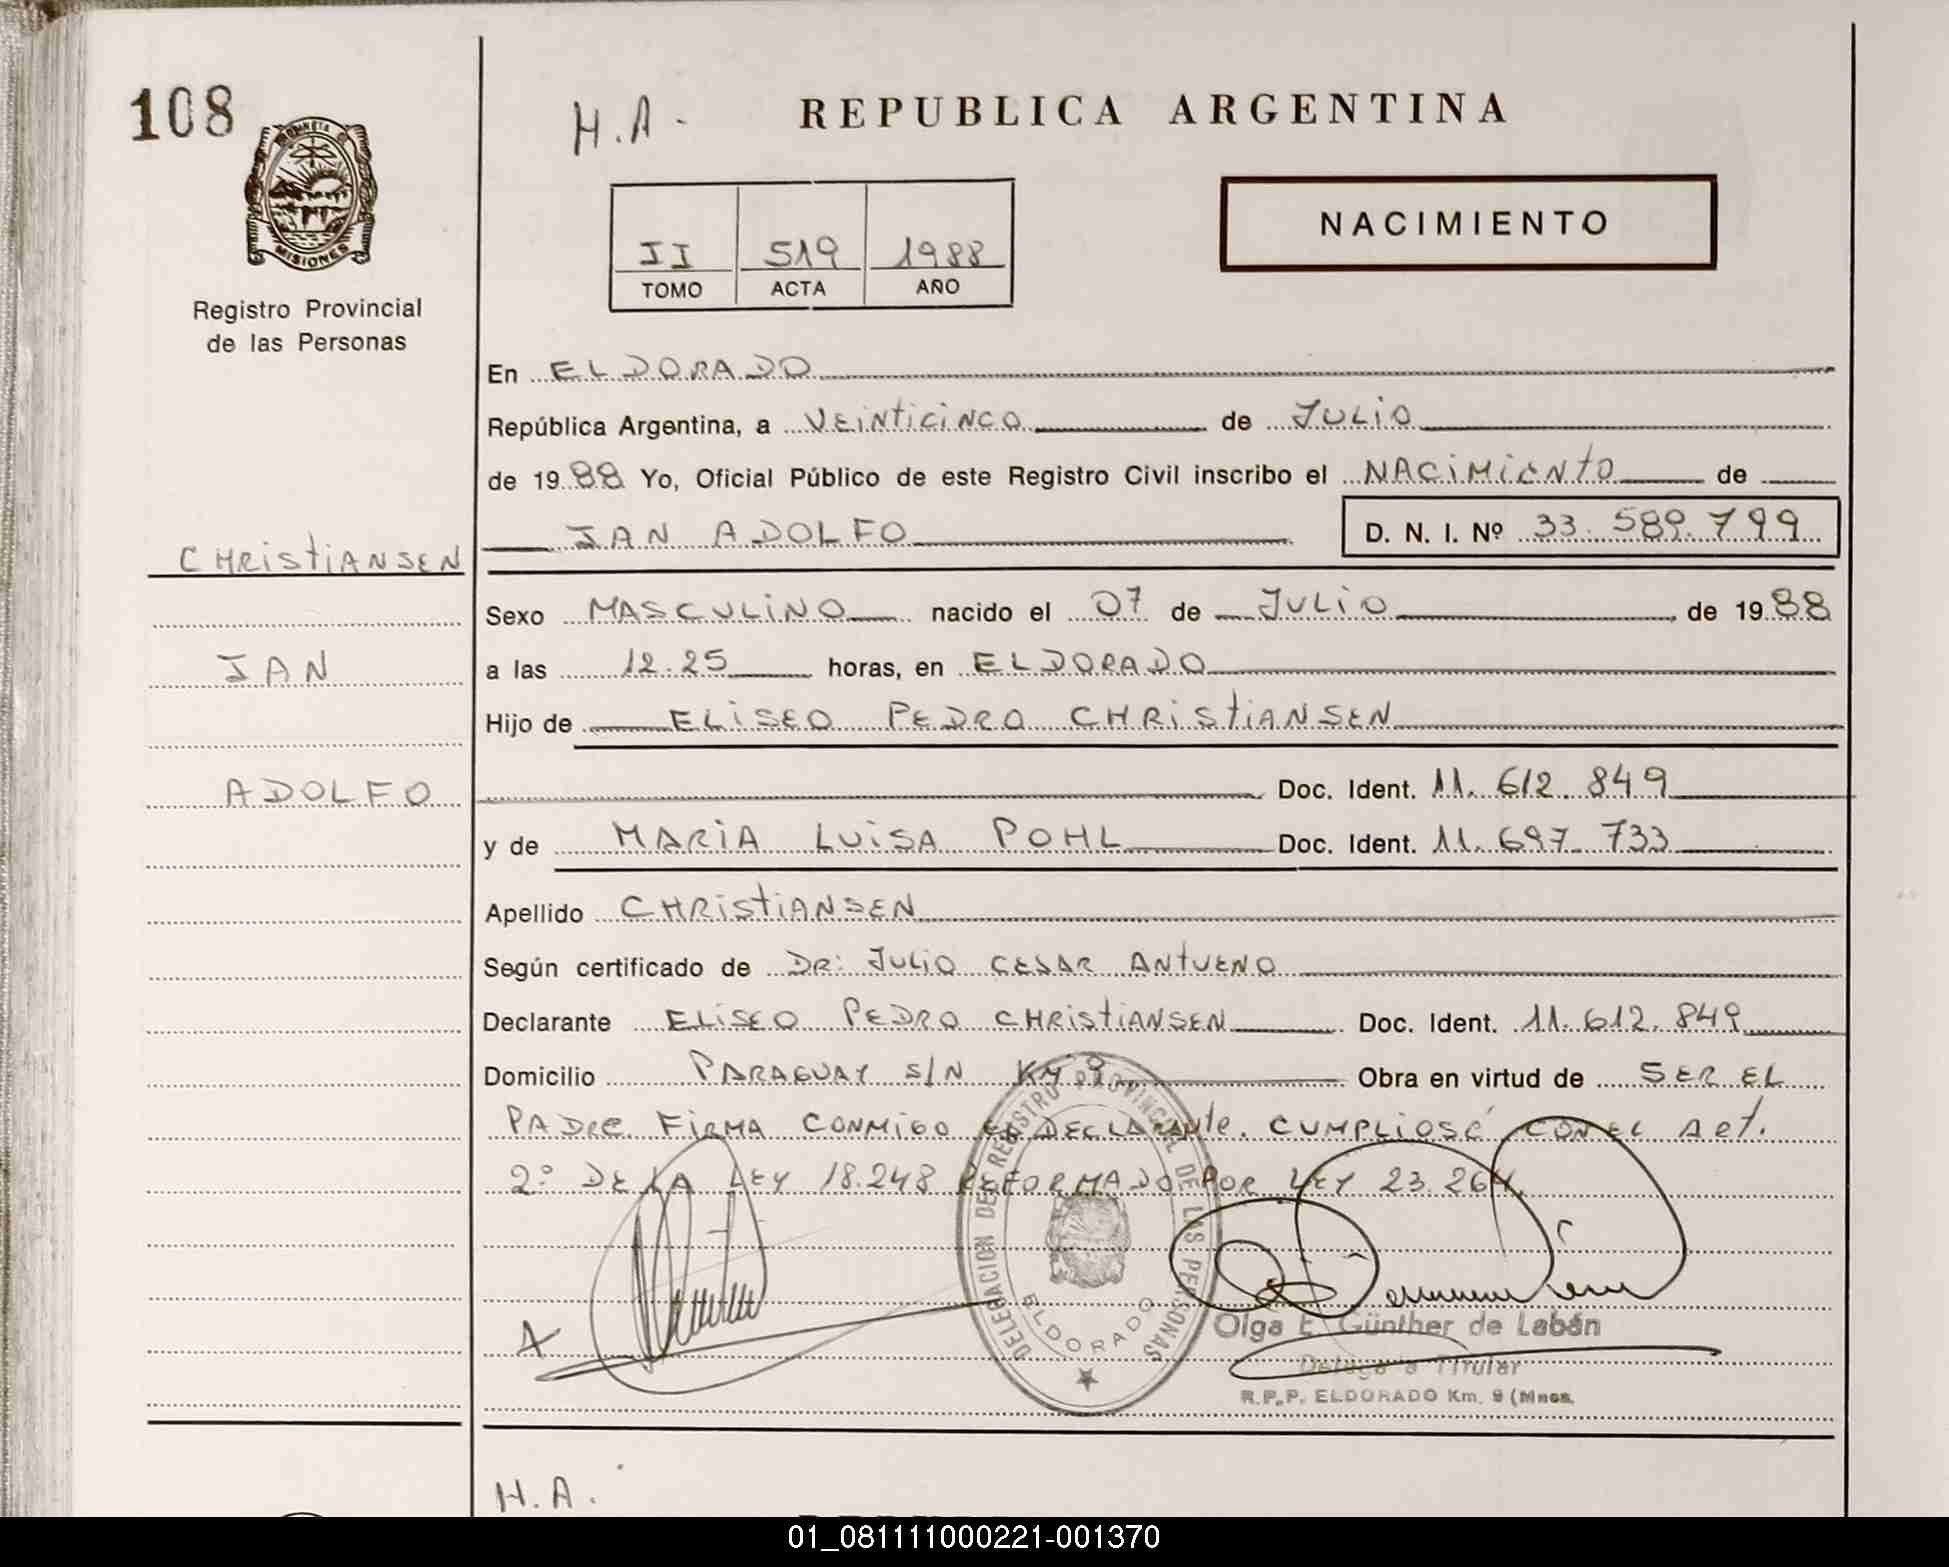 108
REPUBLICA ARGENTINA
H.A.-
PROVINCIA DE
MISIONES
Registro Provincial
de las Personas
II 519 1988
TOMO ACTA AÑO
NACIMIENTO
En ELDORADO
República Argentina, a VEINTICINCO de JULIO
de 1988 Yo, Oficial Público de este Registro Civil inscribo el NACIMIENTO de
JAN ADOLFO D. N. I. Nº 33.589.799
CHRISTIANSEN
JAN
ADOLFO
Sexo MASCULINO nacido el 07 de JULIO de 1988
a las 12.25 horas, en ELDORADO
Hijo de ELISEO PEDRO CHRISTIANSEN
Doc. Ident. 11.612.849
y de MARIA LUISA POHL Doc. Ident. 11.697.733
Apellido CHRISTIANSEN
Según certificado de DR: JULIO CESAR ANTUENO
Declarante ELISEO PEDRO CHRISTIANSEN Doc. Ident. 11.612.849
Domicilio PARAGUAY S/N KM 9 Obra en virtud de SER EL
PADRE FIRMA CONMIGO EL DECLARANTE. CUMPLIOSE CON EL Art.
2º DE LA LEY 18.248 REFORMADO POR LEY 23.264.
DELEGACION DEL REGISTRO PROVINCIAL DE LAS PERSONAS
ELDORADO
Olga E. Günther de Labán
Delegada Titular
R.P.P. ELDORADO Km. 9 (Mnes.
H.A.
01_081111000221-001370